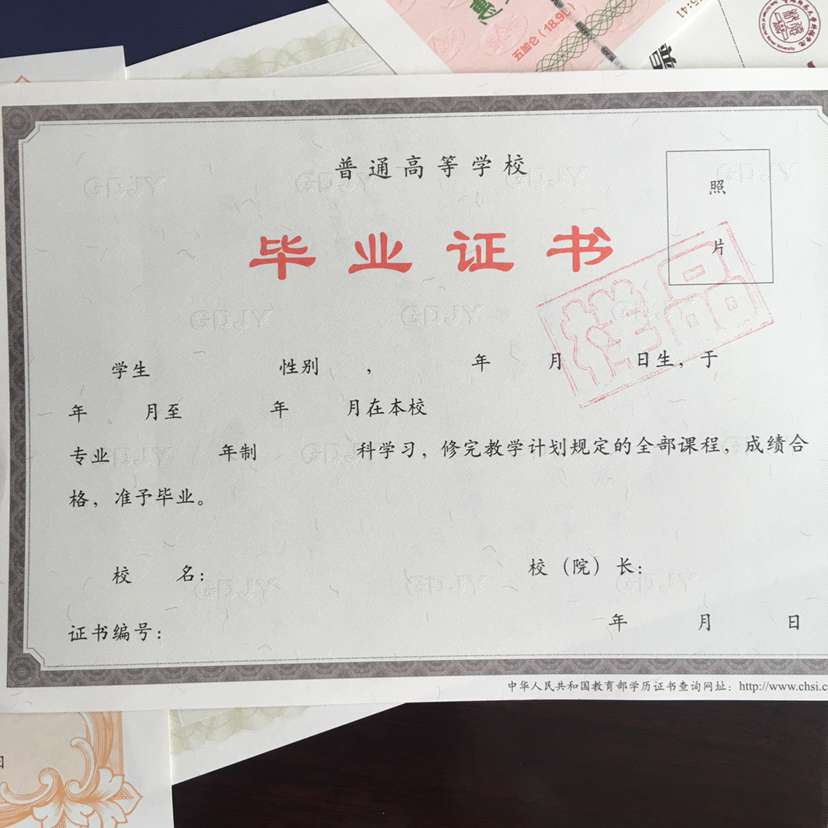 五加仑（18.9L）
5:41
普通高等学校
毕业证书
照
片
样品
学生 性别 ， 年 月 日生，于
年 月至 年 月在本校
专业 年制 科学习，修完教学计划规定的全部课程，成绩合
格，准予毕业。
校 名： 校（院）长：
证书编号： 年 月 日
中华人民共和国教育部学历证书查询网址：http://www.chsi.c